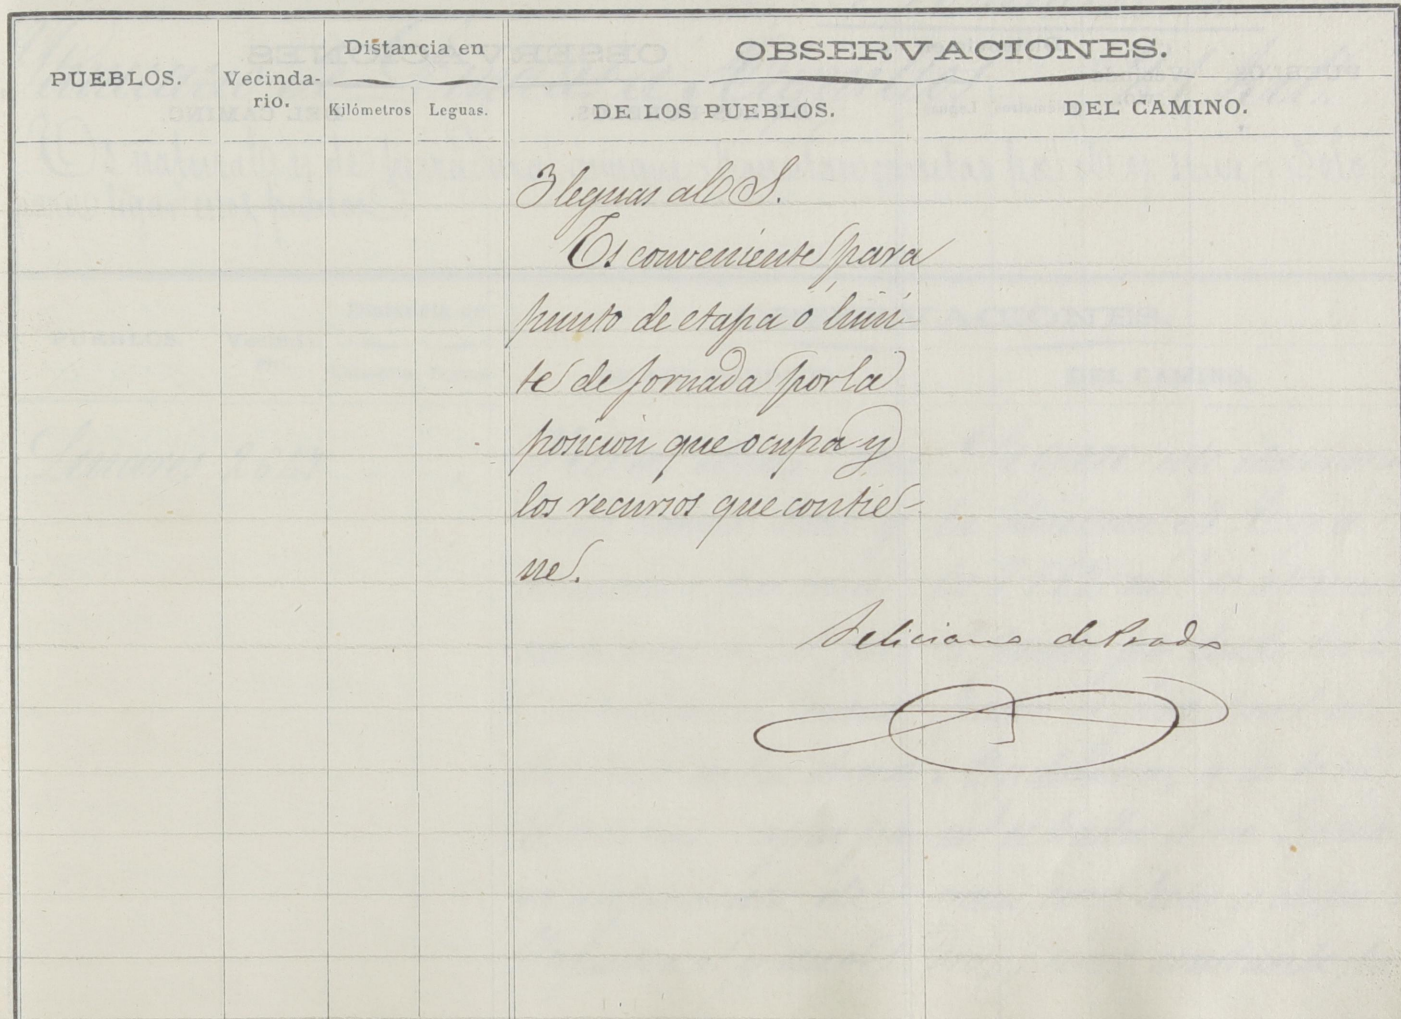 PUEBLOS.
Vecinda-
rio.
Distancia en
Kilómetros
Leguas.
OBSERVACIONES.
DE LOS PUEBLOS.
DEL CAMINO.
3 leguas al S.
Es conveniente para
punto de etapa ó limi-
te de jornada por la
posicion que ocupa y
los recursos que contie-
ne.
Feliciano de Prado